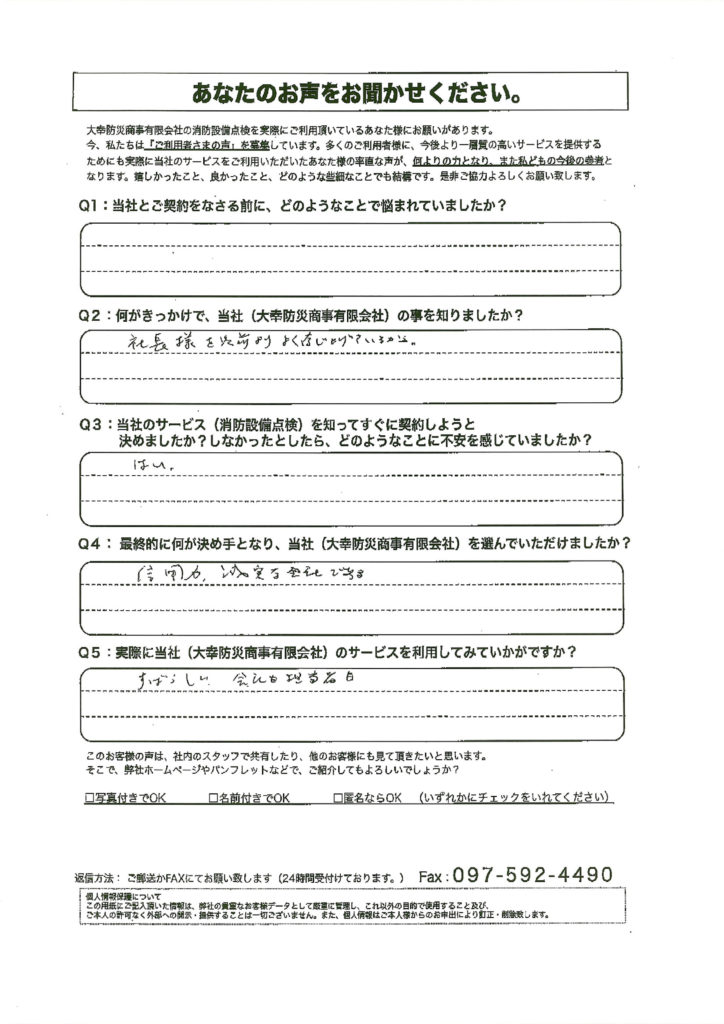 あなたのお声をお聞かせください。
大幸防災商事有限会社の消防設備点検を実際にご利用頂いているあなた様にお願いがあります。
今、私たちは「ご利用者さまの声」を募集しています。多くのご利用者様に、今後より一層質の高いサービスを提供する
ためにも実際に当社のサービスをご利用いただいたあなた様の率直な声が、何よりの力となり、また私どもの今後の参考と
なります。嬉しかったこと、良かったこと、どのような些細なことでも結構です。是非ご協力よろしくお願い致します。
Q1：当社とご契約をなさる前に、どのようなことで悩まれていましたか？
Q2：何がきっかけで、当社（大幸防災商事有限会社）の事を知りましたか？
社長様を以前よりよく存じ上げているから。
Q3：当社のサービス（消防設備点検）を知ってすぐに契約しようと
決めましたか？しなかったとしたら、どのようなことに不安を感じていましたか？
はい。
Q4：最終的に何が決め手となり、当社（大幸防災商事有限会社）を選んでいただけましたか？
信用力、誠実な会社である
Q5：実際に当社（大幸防災商事有限会社）のサービスを利用してみていかがですか？
すばらしい 会社も担当者も
このお客様の声は、社内のスタッフで共有したり、他のお客様にも見て頂きたいと思います。
そこで、弊社ホームページやパンフレットなどで、ご紹介してもよろしいでしょうか？
□写真付きでOK □名前付きでOK □匿名ならOK （いずれかにチェックをいれてください）
返信方法：ご郵送かFAXにてお願い致します（24時間受付ております。） Fax：097-592-4490
個人情報保護について
この用紙にご記入頂いた情報は、弊社の貴重なお客様データとして厳重に管理し、これ以外の目的で使用すること及び、
ご本人の許可なく外部への開示・提供することは一切ございません。また、個人情報はご本人様からのお申出により訂正・削除致します。